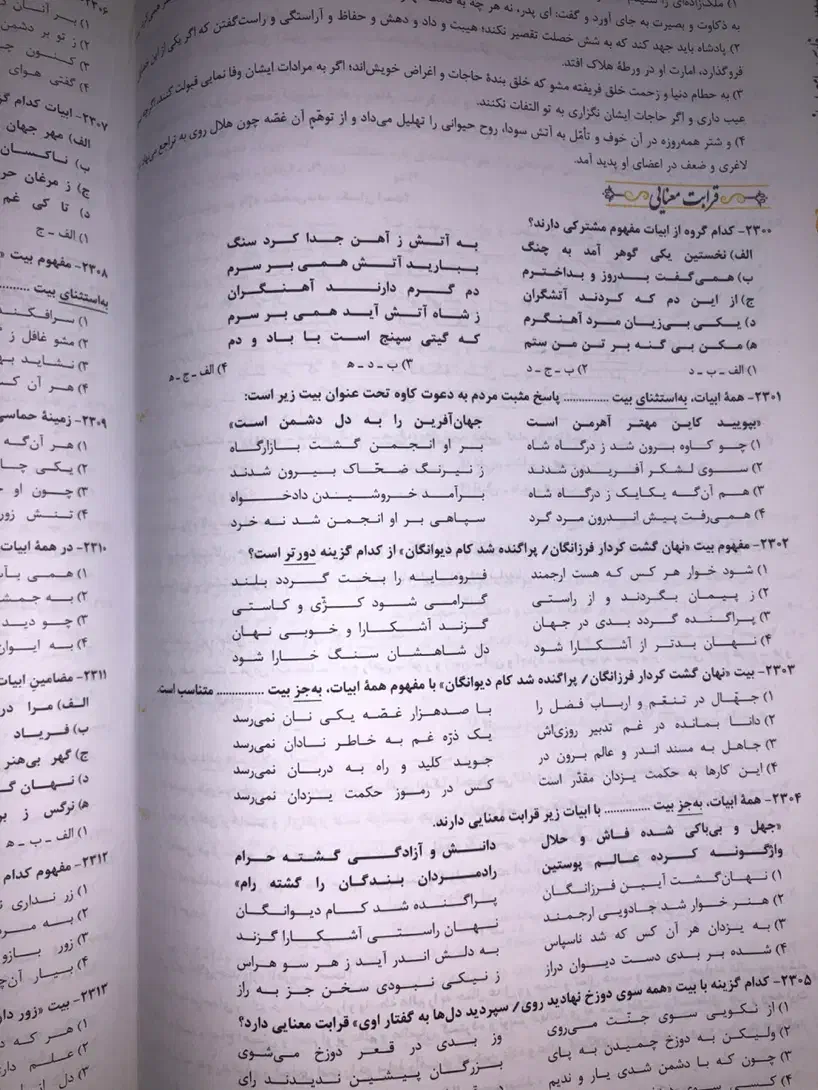 به ذکاوت و بصیرت به جای آورد و گفت: ای پدر، نه هر چه به
۲) پادشاه باید جهد کند که به شش خصلت تقصیر نکند؛ هیبت و داد و دهش و حفاظ و آراستگی و راست‌گفتن که اگر یکی از این
فروگذارد، امارت او در ورطهٔ هلاک افتد.
۳) به حطام دنیا و زحمت خلق فریفته مشو که خلق بندهٔ حاجات و اغراض خویش‌اند؛ اگر به مرادات ایشان وفا نمایی قبولت کنند
عیب داری و اگر حاجات ایشان نگزاری به تو التفات نکنند.
۴) و شتر همه‌روزه در آن خوف و تأمّل به آتش سودا، روح حیوانی را تهلیل می‌داد و از توهّم آن غصّه چون هلال روی به تراجع
لاغری و ضعف در اعضای او پدید آمد.
قرابت معنایی
۲۳۰۰- کدام گروه از ابیات مفهوم مشترکی دارند؟
الف) نخستین یکی گوهر آمد به چنگ به آتش ز آهن جدا کرد سنگ
ب) همی‌گفت بدروز و بداخترم ببارید آتش همی بر سرم
ج) از این دم که کردند آتشگران دم گرم دارند آهنگران
د) یکی بی‌زیان مرد آهنگرم ز شاه آتش آید همی بر سرم
ه) مکن بی گنه بر تن من ستم که گیتی سپنج است با باد و دم
۱) الف - ب - د ۲) ب - ج - د ۳) ب - د - ه ۴) الف - ج - ه
۲۳۰۱- همهٔ ابیات، به‌استثنای بیت .............. پاسخ مثبت مردم به دعوت کاوه تحت عنوان بیت زیر است:
«بپویید کاین مهتر آهرمن است جهان‌آفرین را به دل دشمن است»
۱) چو کاوه برون شد ز درگاه شاه بر او انجمن گشت بازارگاه
۲) سوی لشکر آفریدون شدند ز نیرنگ ضحّاک بیرون شدند
۳) هم آن‌گه یکایک ز درگاه شاه برآمد خروشیدن دادخواه
۴) همی‌رفت پیش اندرون مرد گرد سپاهی بر او انجمن شد نه خرد
۲۳۰۲- مفهوم بیت «نهان گشت کردار فرزانگان/ پراگنده شد کام دیوانگان» از کدام گزینه دورتر است؟
۱) شود خوار هر کس که هست ارجمند فرومایه را بخت گردد بلند
۲) ز پیمان بگردند و از راستی گرامی شود کژّی و کاستی
۳) پراگنده گردد بدی در جهان گزند آشکارا و خوبی نهان
۴) نهان بدتر از آشکارا شود دل شاهشان سنگ خارا شود
۲۳۰۳- بیت «نهان گشت کردار فرزانگان/ پراگنده شد کام دیوانگان» با مفهوم همهٔ ابیات، به‌جز بیت .............. متناسب است.
۱) جهّال در تنعّم و ارباب فضل را با صدهزار غصّه یکی نان نمی‌رسد
۲) دانا بمانده در غم تدبیر روزی‌اش یک ذرّه غم به خاطر نادان نمی‌رسد
۳) جاهل به مسند اندر و عالم برون در جوید کلید و راه به دربان نمی‌رسد
۴) این کارها به حکمت یزدان مقدّر است کس در رموز حکمت یزدان نمی‌رسد
۲۳۰۴- همهٔ ابیات، به‌جز بیت .............. با ابیات زیر قرابت معنایی دارند.
«جهل و بی‌باکی شده فاش و حلال دانش و آزادگی گشته حرام
واژگونه کرده عالم پوستین رادمردان بندگان را گشته رام»
۱) نهان گشت آیین فرزانگان پراگنده شد کام دیوانگان
۲) هنر خوار شد جادویی ارجمند نهان راستی آشکارا گزند
۳) به یزدان هر آن کس که شد ناسپاس به دلش اندر آید ز هر سو هراس
۴) شده بر بدی دست دیوان دراز ز نیکی نبودی سخن جز به راز
۲۳۰۵- کدام گزینه با بیت «همه سوی دوزخ نهادید روی/ سپردید دل‌ها به گفتار اوی» قرابت معنایی دارد؟
۱) از نکویی سوی جنّت می‌روی وز بدی در قعر دوزخ می‌شوی
۲) ولیکن به دوزخ چمیدن به پای بزرگان پیشین ندیدند رای
۳) چون که با دشمن شدی یار و ندیم
۲۳۰۶-
۱) بر آنان
۲) ز تو بر دشمن
۳) کنون
۴) گفتی هوای
۲۳۰۷- ابیات کدام
الف) مهر جهان
ب) ناکسان
ج) ز مرغان
د) تا کی غم
۱) الف - ج
۲۳۰۸- مفهوم بیت
به‌استثنای بیت
۱) سرافکند
۲) مشو غافل ز
۳) نشاید
۴) هر آن
۲۳۰۹- زمینهٔ حماسی
۱) هر آن‌گه
۲) یکی
۳) چون او
۴) تنش زور
۲۳۱۰- در همهٔ ابیات
۱) همی
۲) به
۳) چو دید
۴) به ایوان
۲۳۱۱- مضامین ابیات
الف) مرا در
ب) فریاد
ج) گهر بی‌هنر
د) نهان
ه) نرگس ز
۱) الف - ب - ه
۲۳۱۲- مفهوم کدام
۱) زر نداری
۲) به
۳) زور بازو
۴) بیار
۲۳۱۳- بیت «زور
۱) هر که
۲) علم
۳) دل